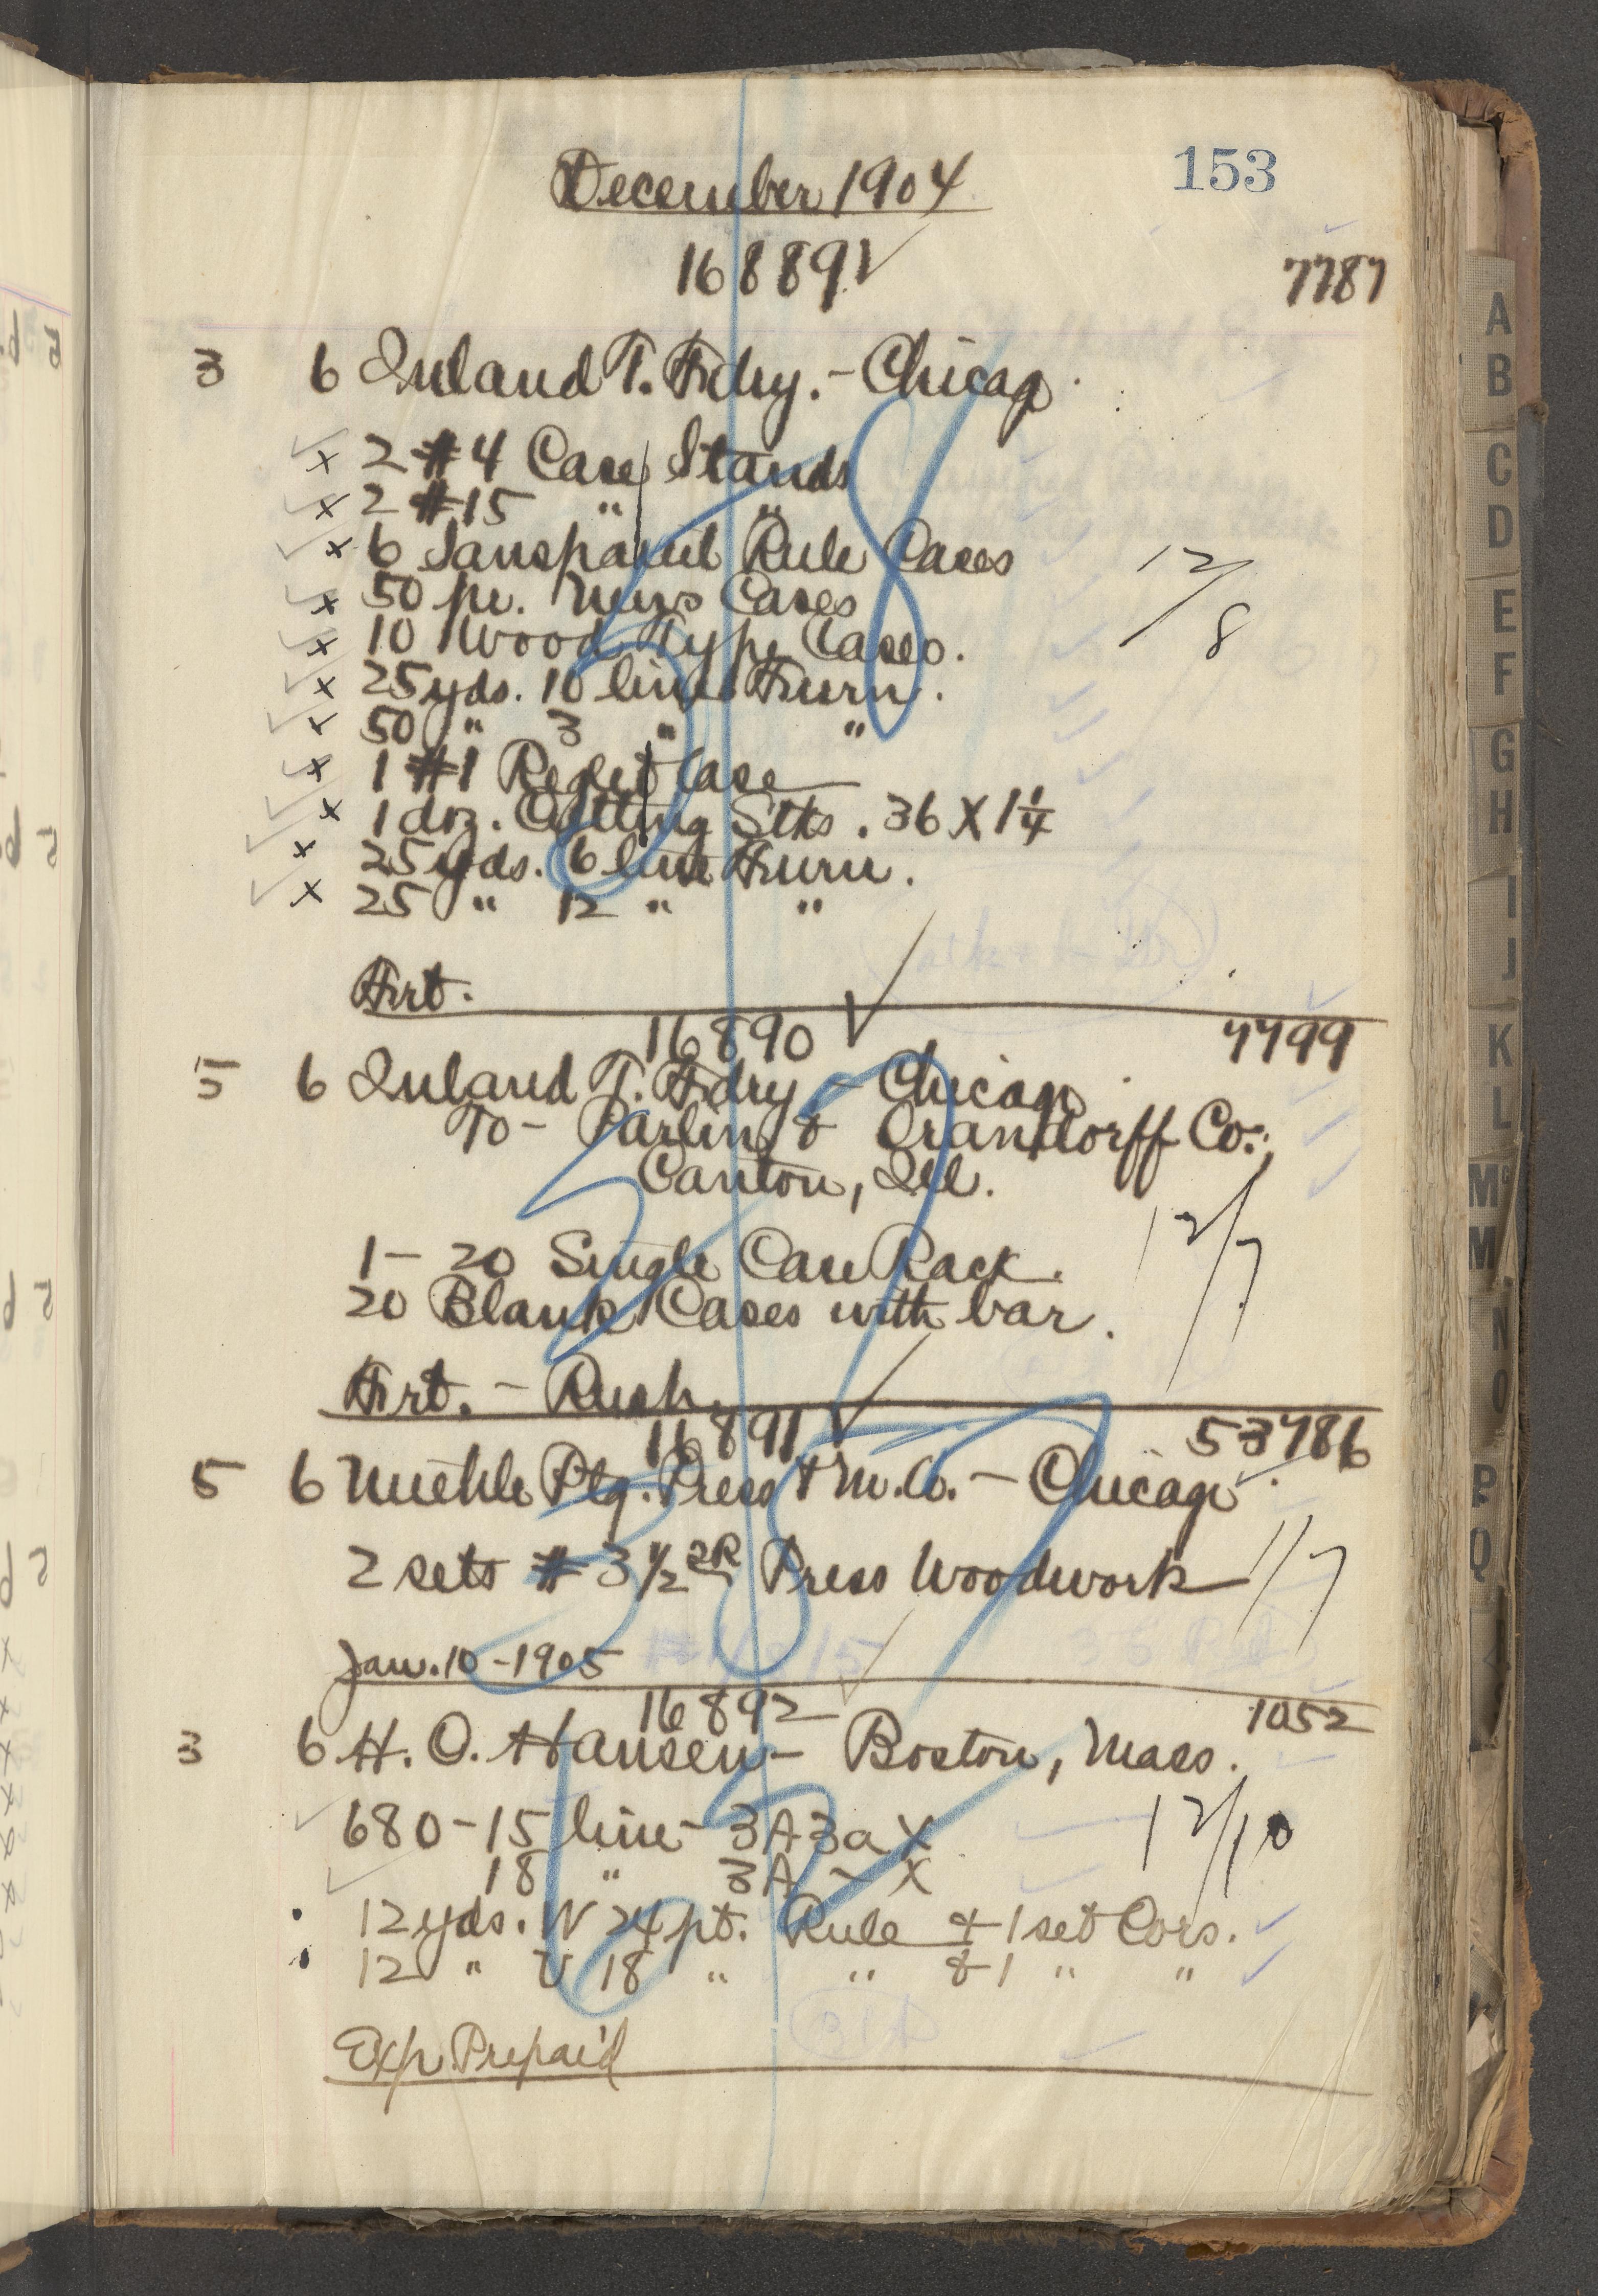 153
December 1904
16889 ✓
7787
3 6 Inland T. Fdry. - Chicago
✓ x 2 #4 Case Stands
✓ x 2 #15 " "
✓ x 6 Rule Cases
✓ x 50 pr. News Cases
✓ x 10 Wood Type Cases.
✓ x 25 yds. 10 line Furn.
✓ x 50 " 3 " "
✓ x 1 #1 Reglet Case
✓ x 1 doz. Cutting Stks. 36 X 1 1/4
✓ x 25 yds. 6 line Furn.
✓ x 25 " 12 " "
12/8
Frt.
16890 ✓
7799
5 6 Inland T. Fdry. - Chicago
To - Parlin & Orandorff Co.,
Canton, Ill.
1 - 20 Single Case Rack.
20 Blank Cases with bar.
12/7
Frt. - Rush.
16891 ✓
53786
5 6 Miehle Ptg. Press & M. Co. - Chicago
2 sets #3 1/2 2R Press Woodwork
1/7
Jan. 10 - 1905
16892 ✓
1052
3 6 H. O. Hansen - Boston, Mass.
✓ 680 - 15 line - 3A 3a X
✓ 18 " 3A - X
12 yds. W 24 pt. Rule & 1 set Cors.
12 " V 18 " " & 1 " "
12/10
Exp. Prepaid
A
B
C
D
E
F
G
H
I
J
K
L
Mc
M
N
O
P
Q